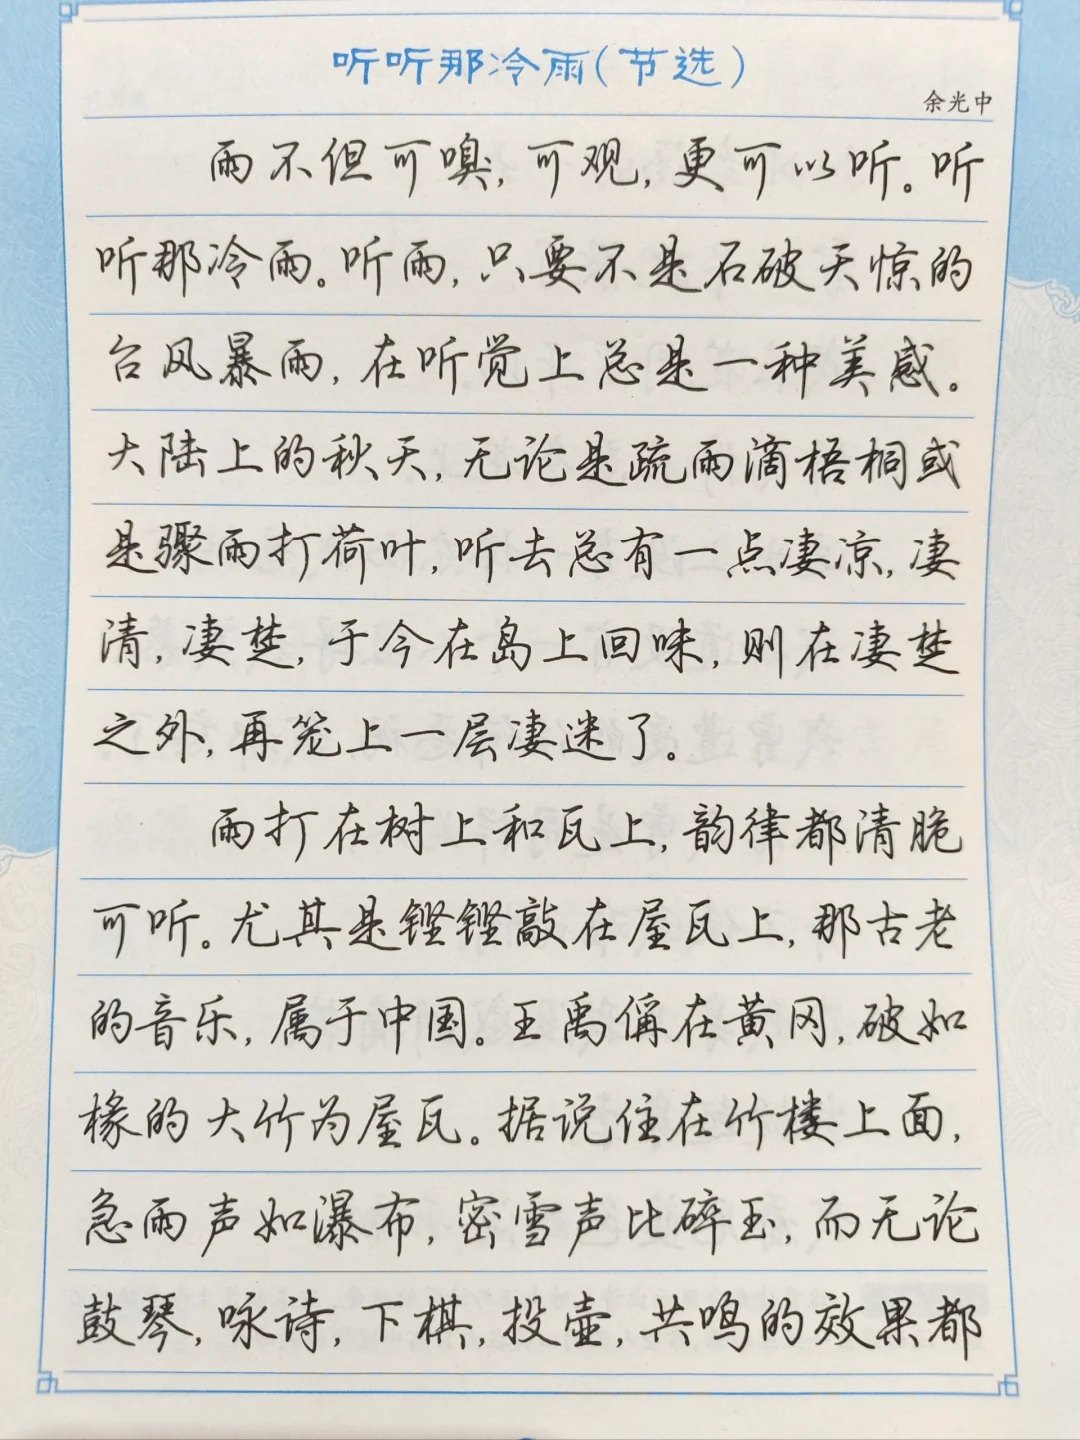 听听那冷雨(节选)
余光中
雨不但可嗅,可观,更可以听。听
听那冷雨。听雨,只要不是石破天惊的
台风暴雨,在听觉上总是一种美感。
大陆上的秋天,无论是疏雨滴梧桐或
是骤雨打荷叶,听去总有一点凄凉,凄
清,凄楚,于今在岛上回味,则在凄楚
之外,再笼上一层凄迷了。
雨打在树上和瓦上,韵律都清脆
可听。尤其是铿铿敲在屋瓦上,那古老
的音乐,属于中国。王禹偁在黄冈,破如
椽的大竹为屋瓦。据说住在竹楼上面,
急雨声如瀑布,密雪声比碎玉,而无论
鼓琴,咏诗,下棋,投壶,共鸣的效果都